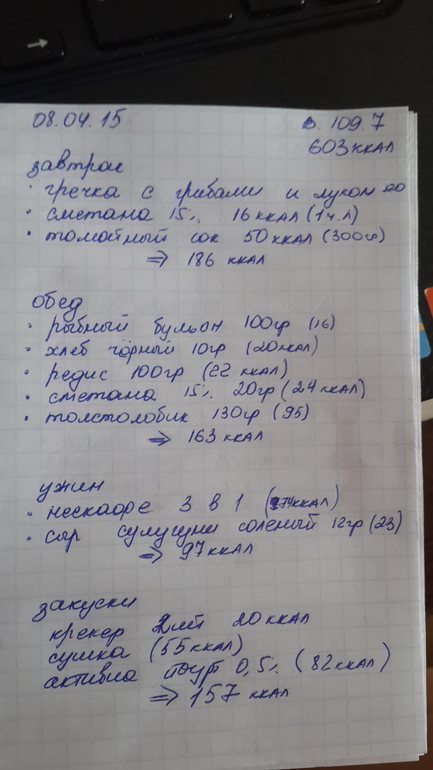 08.04.15 В. 109.7
603 ккал
завтрак
• гречка с грибами и луком 120
• сметана 15% 16 ккал (1ч.л)
• томатный сок 50 ккал (300гр)
⇒ 186 ккал
обед
• рыбный бульон 100гр (16)
• хлеб чёрный 10гр (20ккал)
• редис 100гр (22 ккал)
• сметана 15% 20гр (24 ккал)
• толстолобик 130гр (95)
⇒ 163 ккал
ужин
• нескафе 3 в 1 (74ккал)
• сыр сулугуни соленый 12гр (23)
⇒ 97 ккал
закуски
крекер 2шт 20 ккал
сушка (55 ккал)
активиа 0,5% (82 ккал)
⇒ 157 ккал